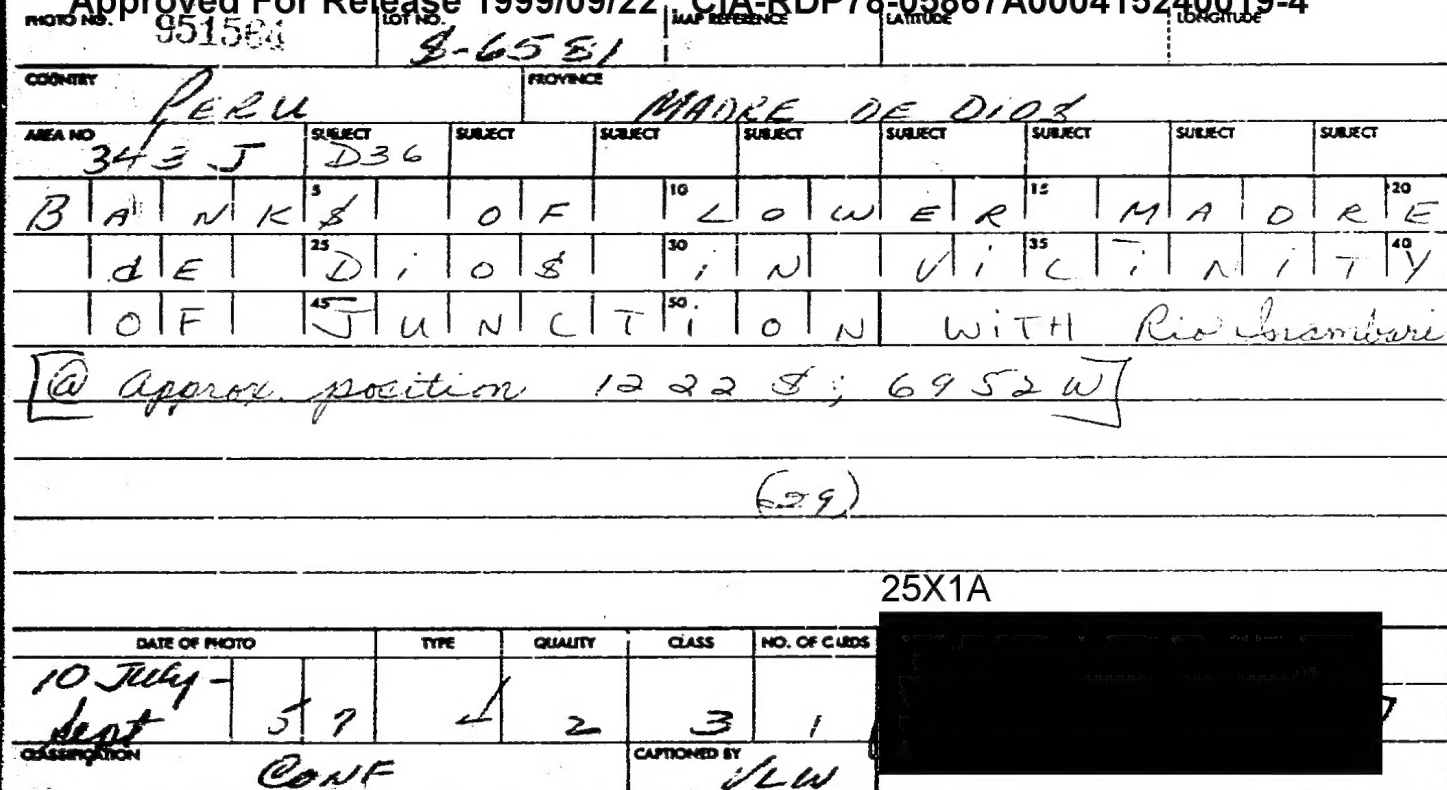 Approved For Release 1999/09/22 : CIA-RDP78-05867A000415240019-4
PHOTO NO. 951564 LOT NO. S-6581 MAP REFERENCE LATITUDE LONGITUDE
COUNTRY PERU PROVINCE MADRE DE DIOS
AREA NO 343 J SUBJECT D36 SUBJECT SUBJECT SUBJECT SUBJECT SUBJECT SUBJECT SUBJECT
5 10 15 20
BANKS OF LOWER MADRE
25 30 35 40
dE DiOS iN ViCiNITY
45 50
OF JUNCTiON WiTH Rio
[@ approx. position 1222 S; 6952 W]
(29)
25X1A
DATE OF PHOTO TYPE QUALITY CLASS NO. OF CARDS
10 July-
Sept 57 2 3 1
CLASSIFICATION CONF CAPTIONED BY VLW